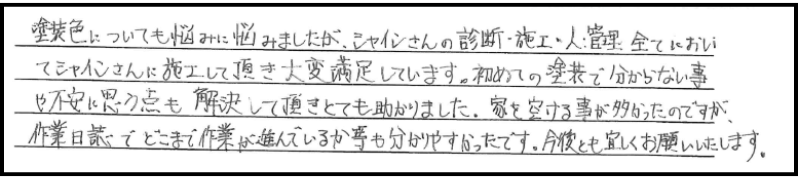 塗装色についても悩みに悩みましたが、シャインさんの診断・施工・人・管理 全てにおい
てシャインさんに施工して頂き大変満足しています。初めての塗装で分からない事
や不安に思う点も 解決して頂きとても助かりました。家を空ける事が多かったのですが、
作業日誌でどこまで作業が進んでいるか等も分かりやすかったです。今後とも宜しくお願いいたします。